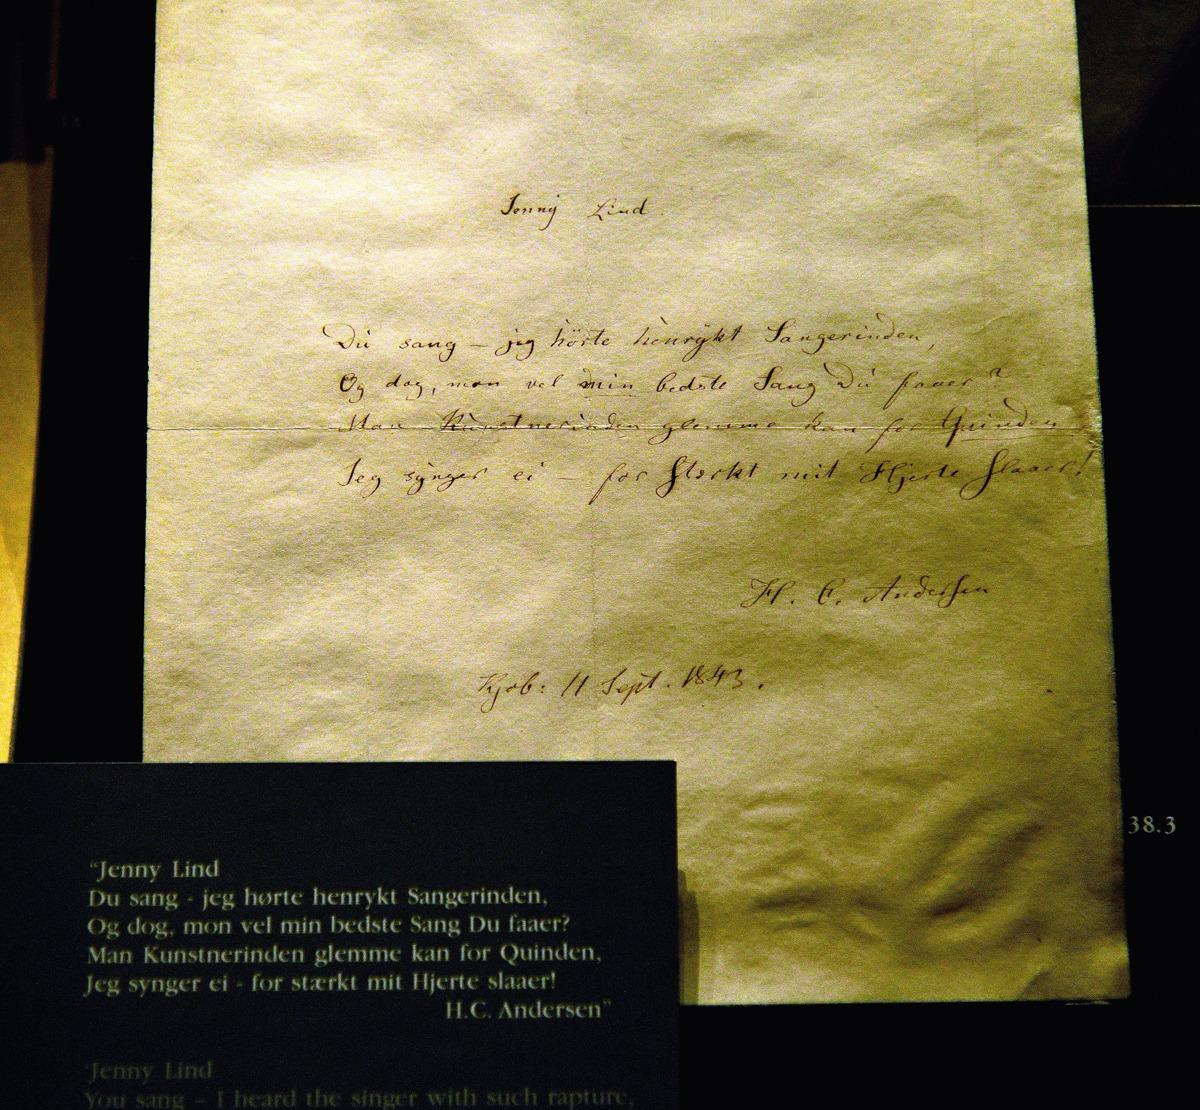 Jenny Lind.
Du sang – jeg hörte henrykt Sangerinden,
Og dog, mon vel min bedste Sang Du faaer?
Man Kunstnerinden glemme kan for Quinden,
Jeg synger ei – for stærkt mit Hjerte slaaer!
H. C. Andersen
Kjøb: 11 Sept. 1843.
38.3
"Jenny Lind
Du sang - jeg hørte henrykt Sangerinden,
Og dog, mon vel min bedste Sang Du faaer?
Man Kunstnerinden glemme kan for Quinden,
Jeg synger ei - for stærkt mit Hjerte slaaer!
H.C. Andersen"
'Jenny Lind
You sang – I heard the singer with such rapture,